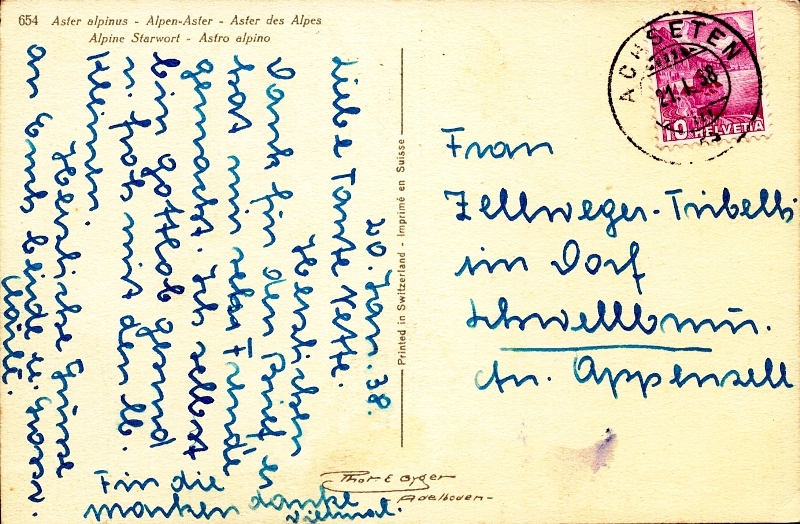 654 Aster alpinus - Alpen-Aster - Aster des Alpes
Alpine Starwort - Astro alpino
20. Jan. 38.
Liebe Tante Nette.
Herzlichen
Dank für den Brief es
hat mir rechte Freude
gemacht. Ich selbst
bin gottlob gesund
u. froh mit den lb.
Kleinen.
Herzliche Grüsse
an Euch beide u. Grossv.
Für die
marken danke
vielmal.
Printed in Switzerland - Imprimé en Suisse
Photo E Gyger
Adelboden-
ACHSETEN
21. I. 38
10 HELVETIA
Frau
Zellweger-Tribelh
im Dorf
Schwellbrunn.
Kn. Appenzell